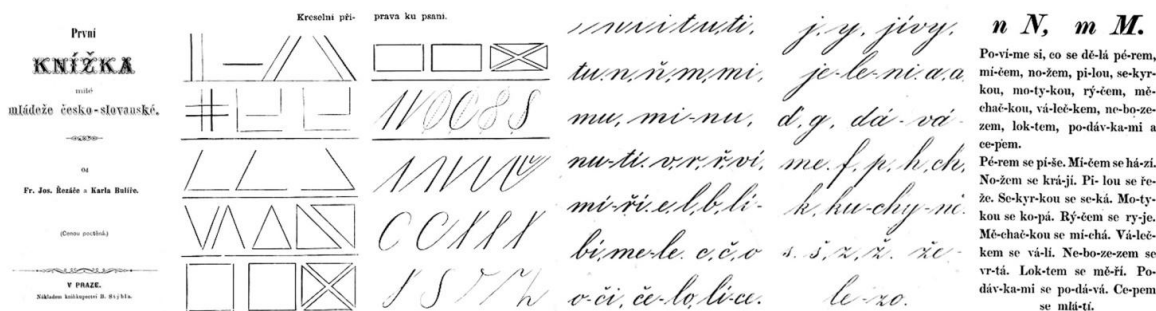 První
KNÍŽKA
milé
mládeže česko-slovanské.
Od
Fr. Jos. Řezáče a Karla Bulíře.
V PRAZE.
Nákladem kněhkupectví B. Stýbla.
Kreselní pří- prava ku psaní.
n u i t u, ti,
tu, n, ň, m, mi,
mu, mi-nu,
nu-ti. v, r, ř, vi,
mi-ři e, l, b, li-
bí, me-le. c, č, o
o-či, če-lo, lí-ce.
j, y, jívy,
je-le-ni a, a
ď, g, dá-vá-
me. f, p, h, ch,
k, ku-chy-ni.
s. š, z, ž. že-
le-zo.
n N, m M.
Po-ví-me si, co se dě-lá pé-rem,
mí-čem, no-žem, pi-lou, se-kyr-
kou, mo-ty-kou, rý-čem, mě-
chač-kou, vá-leč-kem, ne-bo-ze-
zem, lok-tem, po-dáv-ka-mi a
ce-pem.
Pé-rem se pí-še. Mí-čem se há-zí.
No-žem se krá-jí. Pi-lou se ře-
že. Se-kyr-kou se se-ká. Mo-ty-
kou se ko-pá. Rý-čem se ry-je.
Mě-chač-kou se mí-chá. Vá-leč-
kem se vá-lí. Ne-bo-ze-zem se
vr-tá. Lok-tem se mě-ří. Po-
dáv-ka-mi se po-dá-vá. Ce-pem
se mlá-tí.